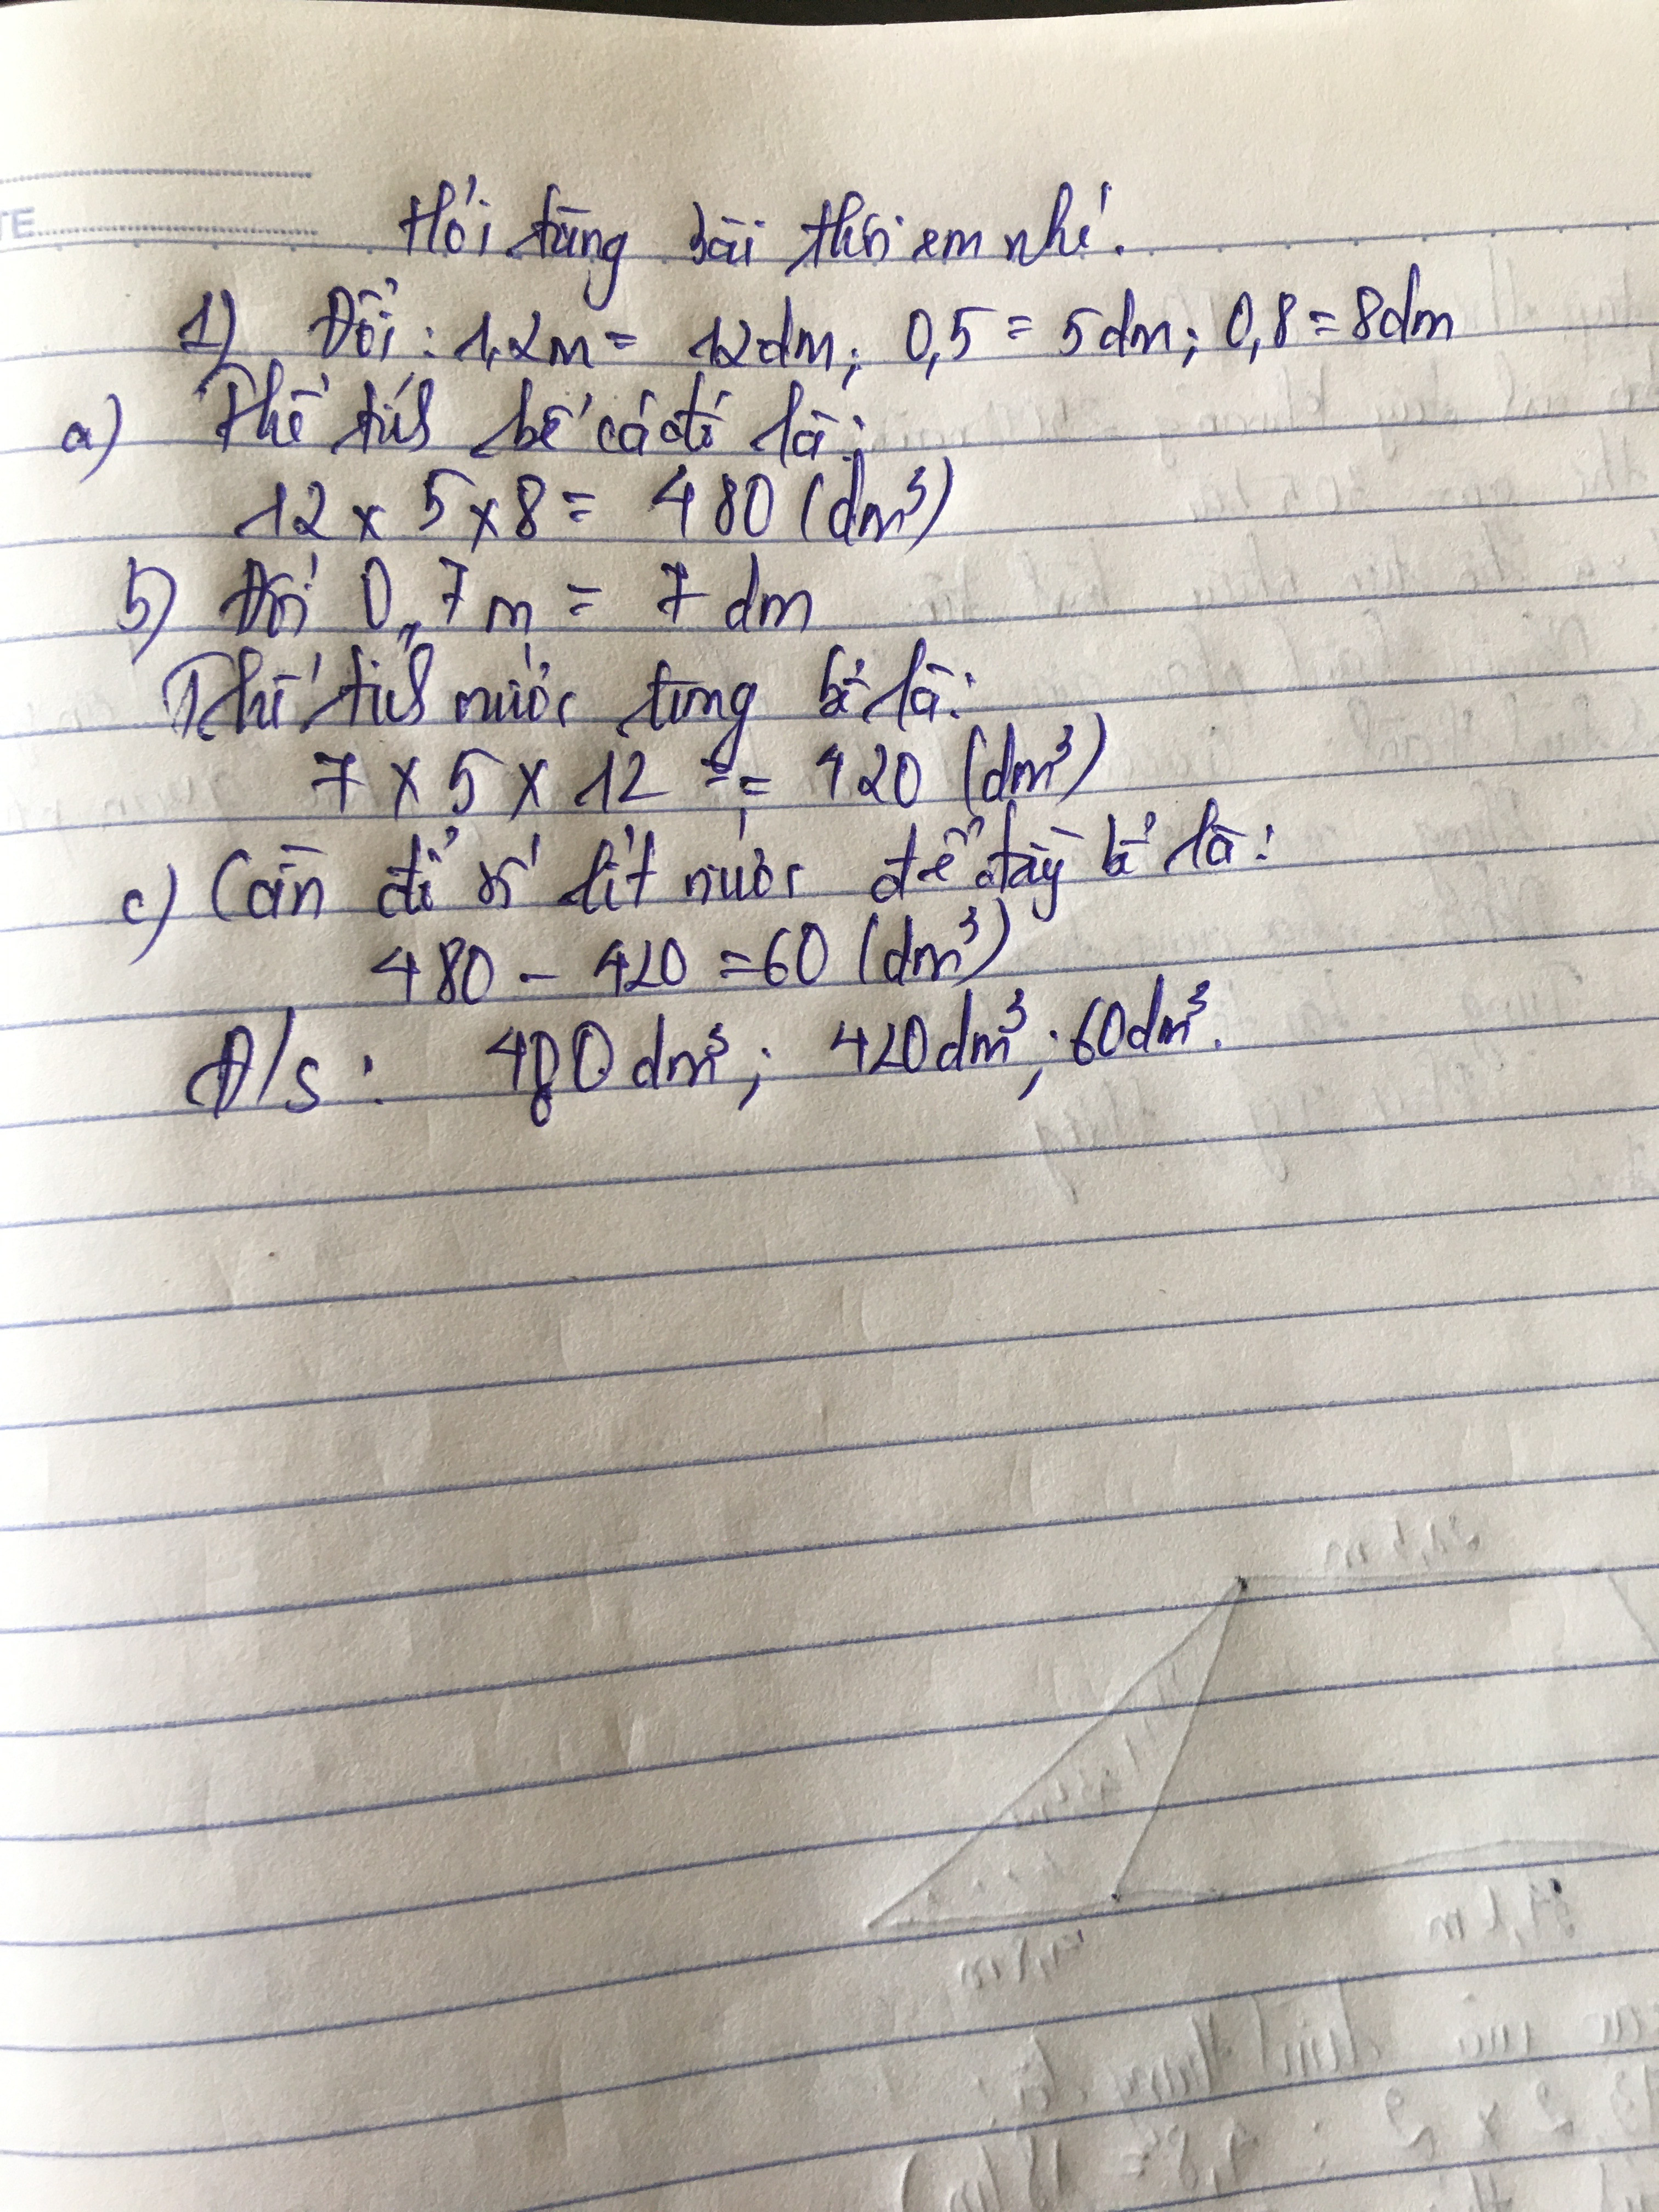 TE
Hỏi từng bài thôi em nhé.
1) Đổi: 1,2m = 12dm; 0,5 = 5dm; 0,8 = 8dm
a) Thể tích bể cá đó là:
12 x 5 x 8 = 480 (dm³)
b) Đổi 0,7m = 7dm
Thể tích nước trong bể là:
7 x 5 x 12 = 420 (dm³)
c) Cần đổ số lít nước để đầy bể là:
480 - 420 = 60 (dm³)
Đ/s: 480dm³; 420dm³; 60dm³.